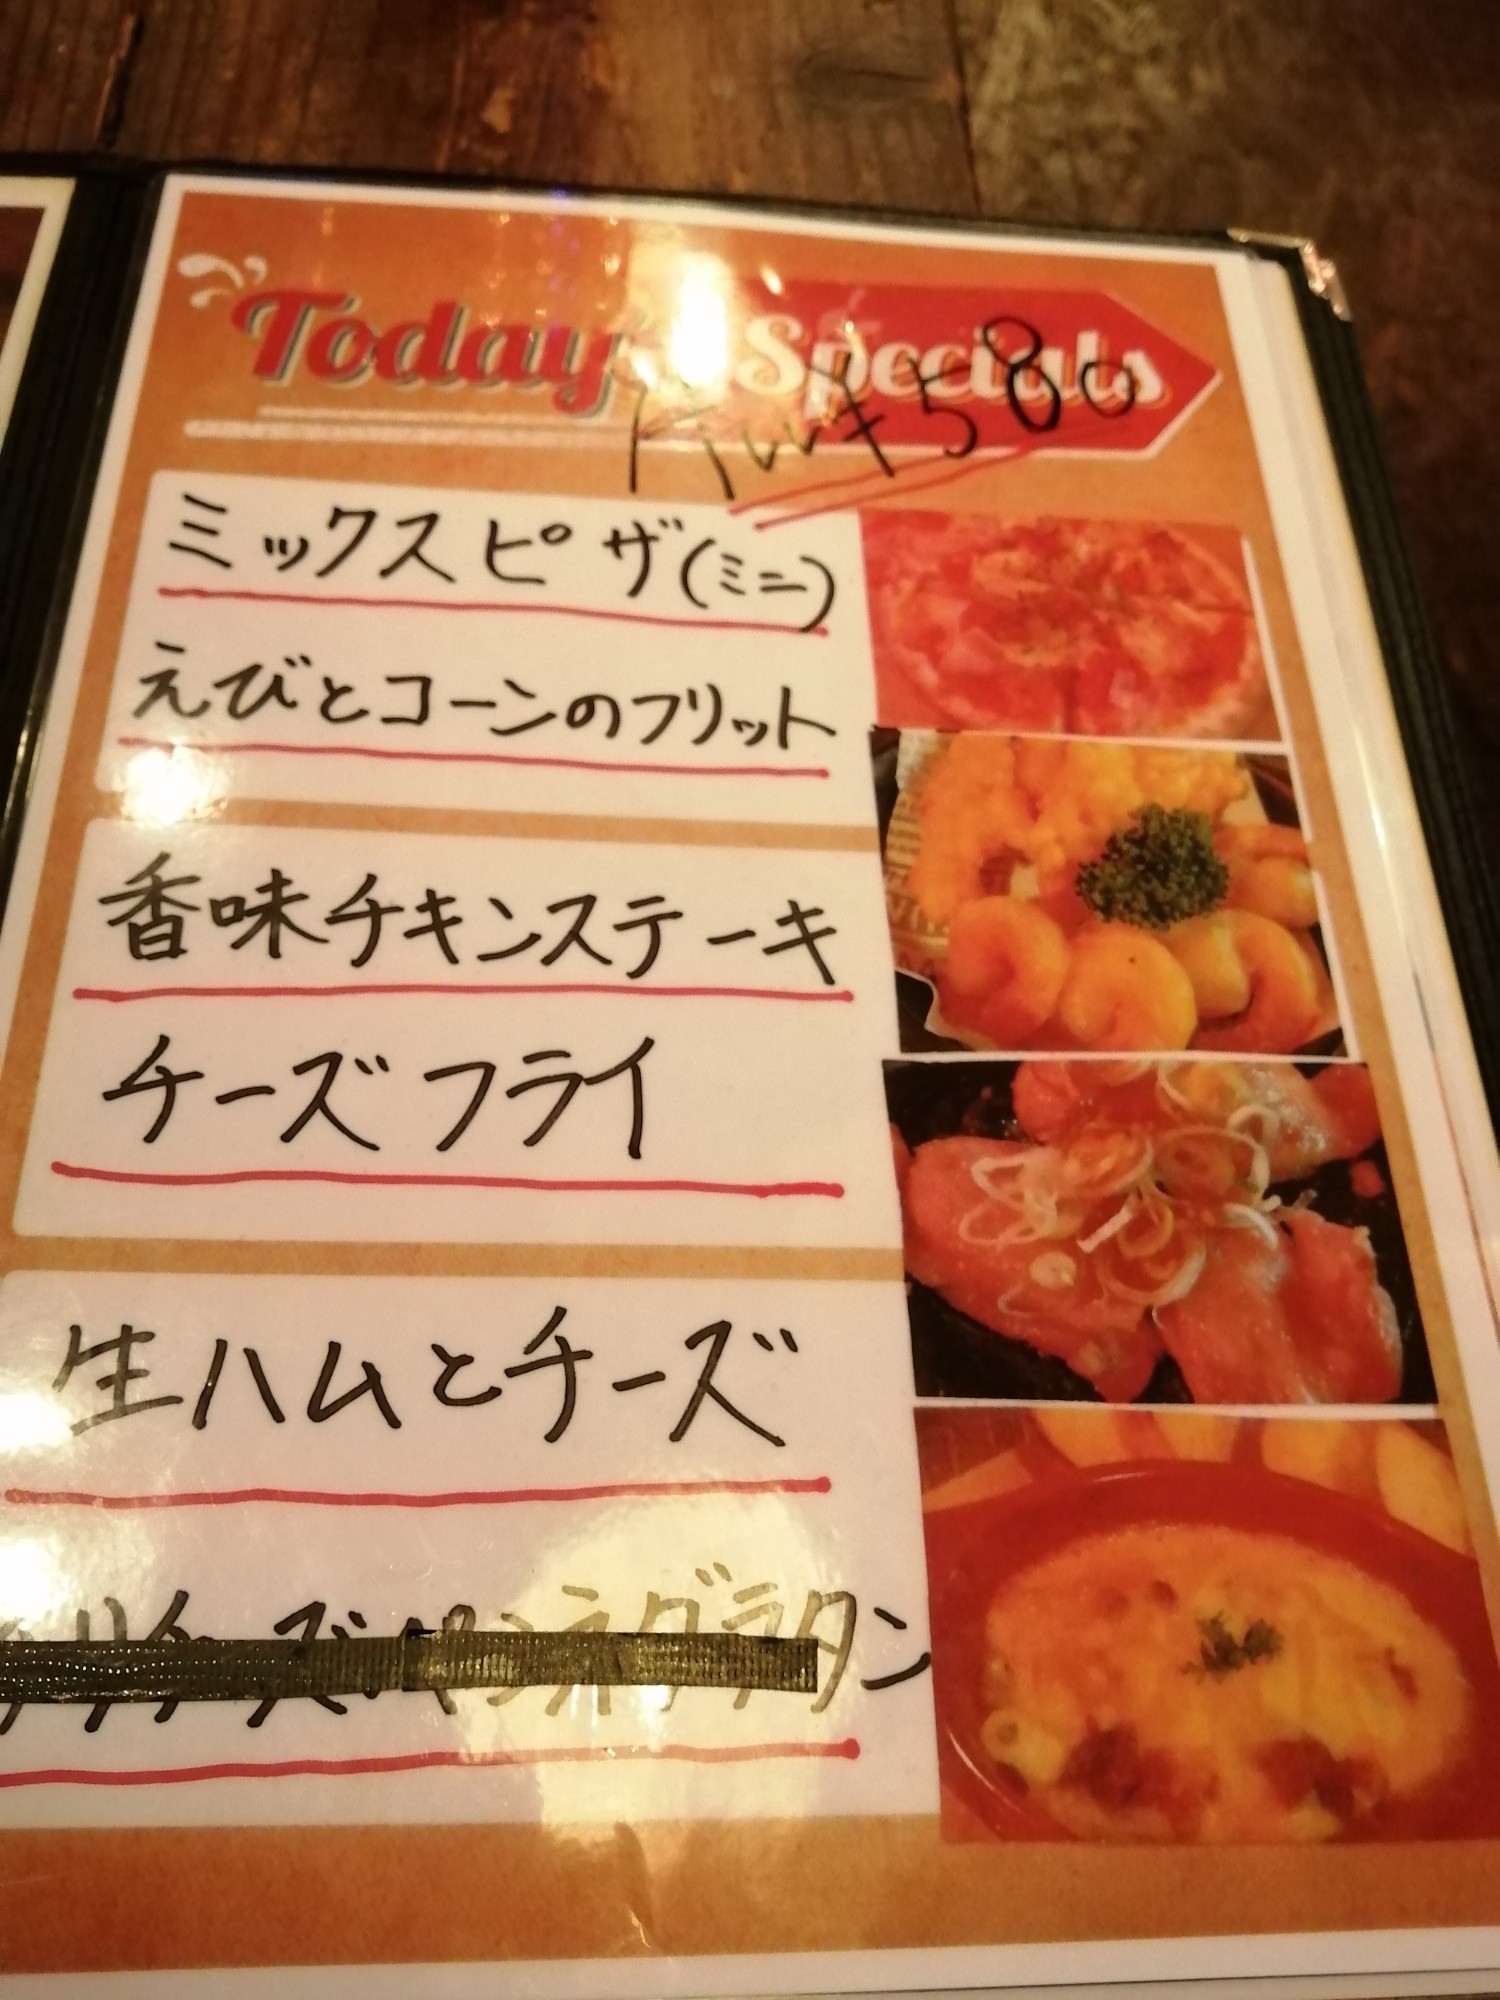 Today's Specials
All ¥580
ミックスピザ(ミニ)
えびとコーンのフリット
香味チキンステーキ
チーズフライ
生ハムとチーズ
チーズペンネグラタン